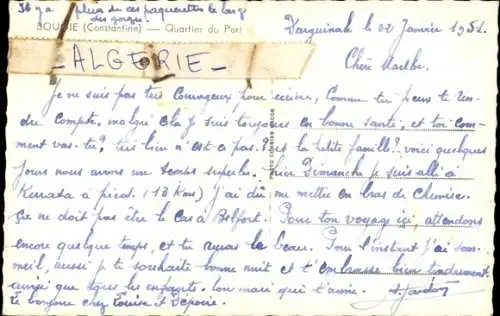 Il y a plein de ces paquerettes le long
des gorges.
BOUGIE (Constantine) — Quartier du Port
- ALGERIE -
Darguinah le 22 Janvier 1952
Chère Marthe.
Je ne suis pas très courageux pour écrire, comme tu peux te ren-
dre compte. malgré cela je suis toujours en bonne santé, et toi com-
ment vas-tu? très bien n'est ce pas? Et la petite famille? voici quelques
jours nous avons un temps superbe. hier Dimanche je suis allé à
Kerrata à pied. (13 kms) j'ai dû me mettre en bras de chemise.
Ça ne doit pas être le cas à Belfort. Pour ton voyage ici, attendons
encore quelque temps, et tu auras le beau. Pour l'instant j'ai som-
meil, aussi je te souhaite bonne nuit et t'embrasse bien tendrement
ainsi que tous les enfants. ton mari qui t'aime.
le bonjour chez Louise et